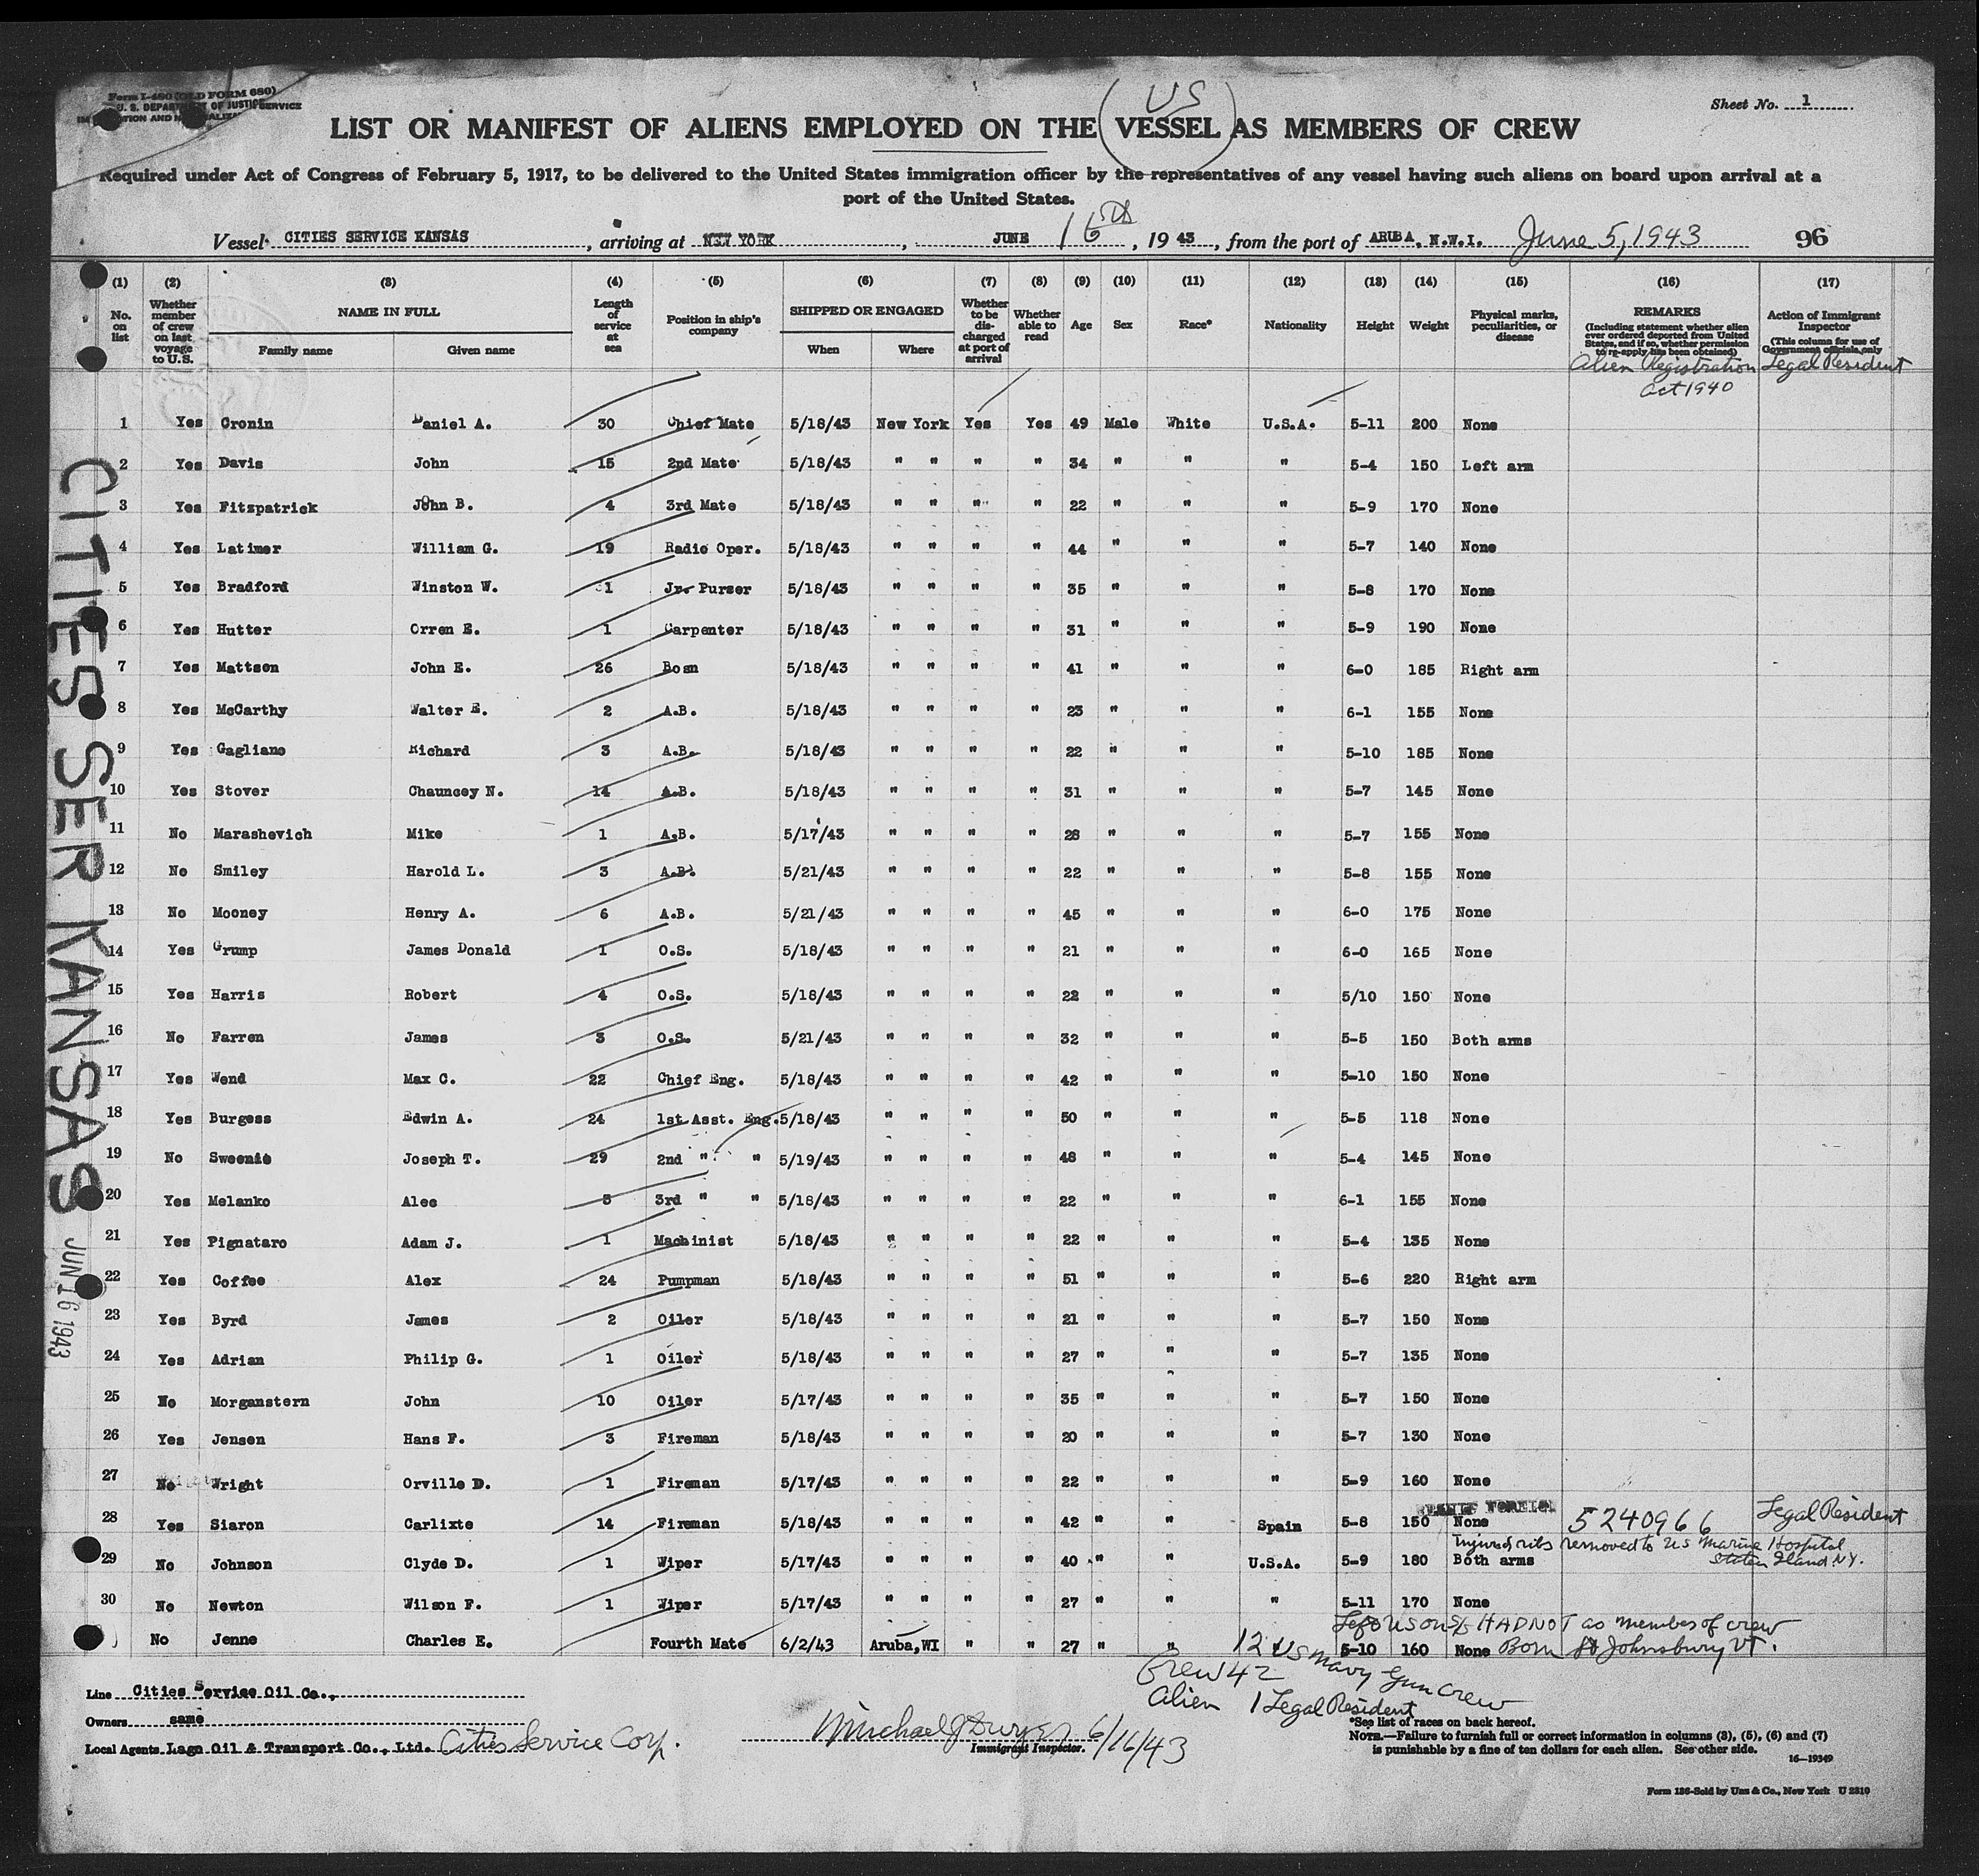 Form I-480 (OLD FORM 680)
U. S. DEPARTMENT OF JUSTICE
SERVICE
US
Sheet No. 1
LIST OR MANIFEST OF ALIENS EMPLOYED ON THE VESSEL AS MEMBERS OF CREW
Required under Act of Congress of February 5, 1917, to be delivered to the United States immigration officer by the representatives of any vessel having such aliens on board upon arrival at a
port of the United States.
Vessel CITIES SERVICE KANSAS, arriving at NEW YORK, JUNE 16th, 1943, from the port of ARUBA, N.W.I. June 5, 1943 96
(1) (2) (3) (4) (5) (6) (7) (8) (9) (10) (11) (12) (13) (14) (15) (16) (17)
No. on list Whether member of crew on last voyage to U.S. NAME IN FULL Family name Given name Length of service at sea Position in ship's company SHIPPED OR ENGAGED When Where Whether to be discharged at port of arrival Whether able to read Age Sex Race* Nationality Height Weight Physical marks, peculiarities, or disease REMARKS (Including statement whether alien ever ordered deported from United States, and if so, whether permission to re-apply has been obtained) Action of Immigrant Inspector (This column for use of Government officials only
Alien Registration Act 1940 Legal Resident
1 Yes Cronin Daniel A. 30 Chief Mate 5/18/43 New York Yes Yes 49 Male White U.S.A. 5-11 200 None
2 Yes Davis John 15 2nd Mate 5/18/43 " " " " 34 " " " 5-4 150 Left arm
3 Yes Fitzpatrick John B. 4 3rd Mate 5/18/43 " " " " 22 " " " 5-9 170 None
4 Yes Latimer William G. 19 Radio Oper. 5/18/43 " " " " 44 " " " 5-7 140 None
5 Yes Bradford Winston W. 1 Jr. Purser 5/18/43 " " " " 35 " " " 5-8 170 None
6 Yes Hutter Orren E. 1 Carpenter 5/18/43 " " " " 31 " " " 5-9 190 None
7 Yes Mattson John E. 26 Bosn 5/18/43 " " " " 41 " " " 6-0 185 Right arm
8 Yes McCarthy Walter E. 2 A.B. 5/18/43 " " " " 23 " " " 6-1 155 None
9 Yes Gagliano Richard 3 A.B. 5/18/43 " " " " 22 " " " 5-10 185 None
10 Yes Stover Chauncey N. 14 A.B. 5/18/43 " " " " 31 " " " 5-7 145 None
11 No Marashevich Mike 1 A.B. 5/17/43 " " " " 28 " " " 5-7 155 None
12 No Smiley Harold L. 3 A.B. 5/21/43 " " " " 22 " " " 5-8 155 None
13 No Mooney Henry A. 6 A.B. 5/21/43 " " " " 45 " " " 6-0 175 None
14 Yes Grump James Donald 1 O.S. 5/18/43 " " " " 21 " " " 6-0 165 None
15 Yes Harris Robert 4 O.S. 5/18/43 " " " " 22 " " " 5/10 150 None
16 No Farren James 3 O.S. 5/21/43 " " " " 32 " " " 5-5 150 Both arms
17 Yes Wend Max C. 22 Chief Eng. 5/18/43 " " " " 42 " " " 5-10 150 None
18 Yes Burgess Edwin A. 24 1st Asst. Eng. 5/18/43 " " " " 50 " " " 5-5 118 None
19 No Sweenie Joseph T. 29 2nd " " 5/19/43 " " " " 48 " " " 5-4 145 None
20 Yes Melanko Alec 5 3rd " " 5/18/43 " " " " 22 " " " 6-1 155 None
21 Yes Pignataro Adam J. 1 Machinist 5/18/43 " " " " 22 " " " 5-4 135 None
22 Yes Coffee Alex 24 Pumpman 5/18/43 " " " " 51 " " " 5-6 220 Right arm
23 Yes Byrd James 2 Oiler 5/18/43 " " " " 21 " " " 5-7 150 None
24 Yes Adrian Philip G. 1 Oiler 5/18/43 " " " " 27 " " " 5-7 135 None
25 No Morganstern John 10 Oiler 5/17/43 " " " " 35 " " " 5-7 150 None
26 Yes Jensen Hans F. 3 Fireman 5/18/43 " " " " 20 " " " 5-7 130 None
27 No Wright Orville D. 1 Fireman 5/17/43 " " " " 22 " " " 5-9 160 None
28 Yes Siaron Carlixte 14 Fireman 5/18/43 " " " " 42 " " Spain 5-8 150 None 5240966 Legal Resident
Injured ribs removed to US Marine Hospital Staten Island NY.
29 No Johnson Clyde D. 1 Wiper 5/17/43 " " " " 40 " " U.S.A. 5-9 180 Both arms
30 No Newton Wilson F. 1 Wiper 5/17/43 " " " " 27 " " " 5-11 170 None
Left US on SS HADNOT as member of crew
No Jenne Charles E. Fourth Mate 6/2/43 Aruba,WI " " 27 " " 5-10 160 None Born St Johnsbury VT.
12 US Navy Gun Crew
Crew 42
Alien 1 Legal Resident
Line Cities Service Oil Co.,
Owners same
Local Agents Lago Oil & Transport Co., Ltd. Cities Service Corp.
Michael J Dwyer 6/16/43
Immigrant Inspector.
*See list of races on back hereof.
NOTE.—Failure to furnish full or correct information in columns (3), (5), (6) and (7)
is punishable by a fine of ten dollars for each alien. See other side.
16—19349
Form 136-Sold by Unz & Co., New York U 2310
CITIES SER KANSAS
JUN 16 1943